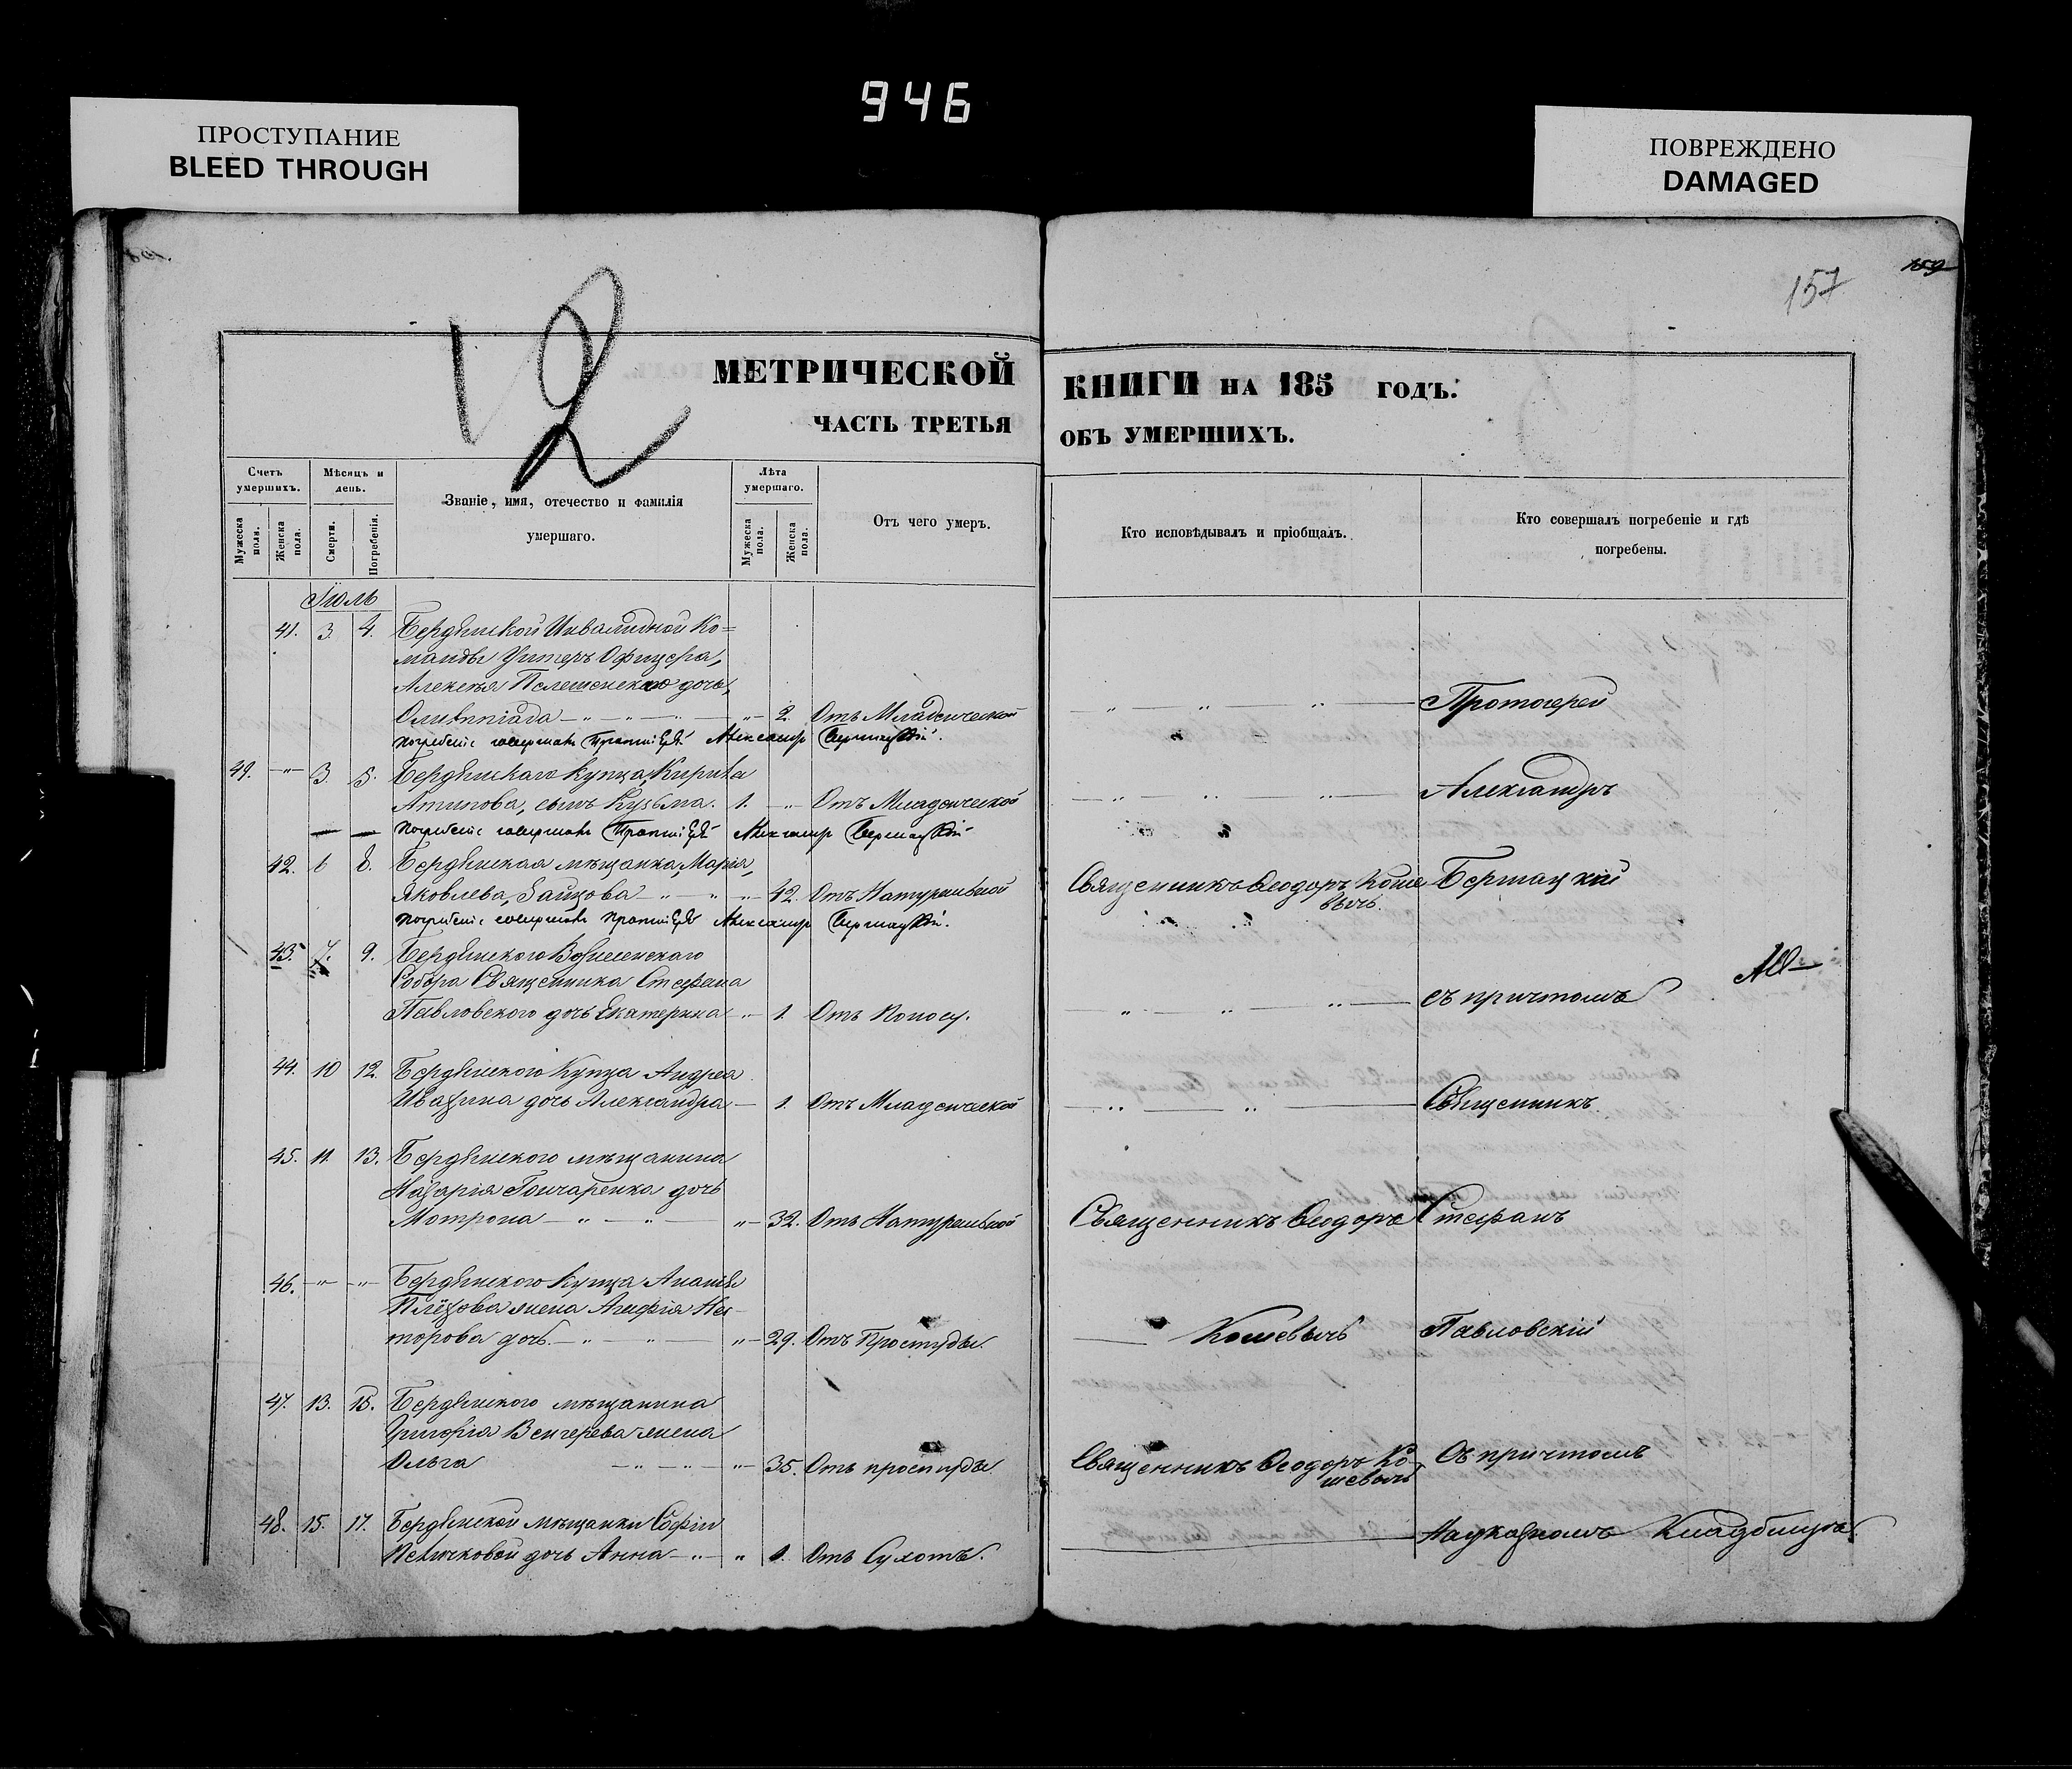 946
ПРОСТУПАНИЕ
BLEED THROUGH
ПОВРЕЖДЕНО
DAMAGED
157
159
12
МЕТРИЧЕСКОЙ КНИГИ НА 185 ГОДЪ.
ЧАСТЬ ТРЕТЬЯ ОБЪ УМЕРШИХЪ.
Счетъ умершихъ.
Мужеска пола.
Женска пола.
Мѣсяцъ и день.
Смерти.
Погребенія.
Званіе, имя, отечество и фамилія
умершаго.
Лѣта умершаго.
Мужеска пола.
Женска пола.
Отъ чего умеръ.
Кто исповѣдывалъ и пріобщалъ.
Кто совершалъ погребеніе и гдѣ
погребены.
Іюль
41. 3. 4. Бердянской Инвалидной Ко=
манды Унтеръ Офицера,
Алексѣя дочь,
Олимпіада — " — " — " — 2. Отъ Младенческой — " — " — " — Протоіерей
погребеніе совершалъ Протоіерей Александр
49. — " — 3. 5. Бердянскаго купца Кирила
сынъ Кузьма. 1. — " — Отъ Младенческой — " — " — " — Александръ
погребеніе совершалъ Протоіерей Александр
42. 6 8. Бердянская мѣщанка, Марія,
Яковлева, Зайцова — " — " — " — 42. Отъ Натуральной Священникъ Ѳеодоръ Коше
вычь.
погребеніе совершалъ Протоіерей Александр
43. 7. 9. Бердянского Вознесенскаго
Собора Священника Стефана
Павловского дочь Екатерина — " — 1. Отъ Поносу. " — " — " — съ причтомъ
44. 10 12. Бердянского Купца Андрея
дочь Александра — 1. Отъ Младенческой — " — " — Священникъ
45. 11. 13. Бердянского мѣщанина
Назарія Гончаренка дочь
Мотрона — " — " — " — 32. Отъ Натуральной Священникъ Ѳеодоръ Стефанъ
46. — " — — " — Бердянского Купца
жена Агафія Нес-
торова дочь — " — " — " — 29. Отъ Простуды. — Кошевычь Павловскій
47. 13. 15. Бердянского мѣщанина
Григорія Венгерева жена
Ольга — " — " — " — 35. Отъ простуды. Священникъ Ѳеодоръ Ко- Съ причтомъ
шевычь
48. 15. 17. Бердянской мѣщанки Софіи
дочь Анна — " — " 1. Отъ Сухотъ. Кладбищѣ.